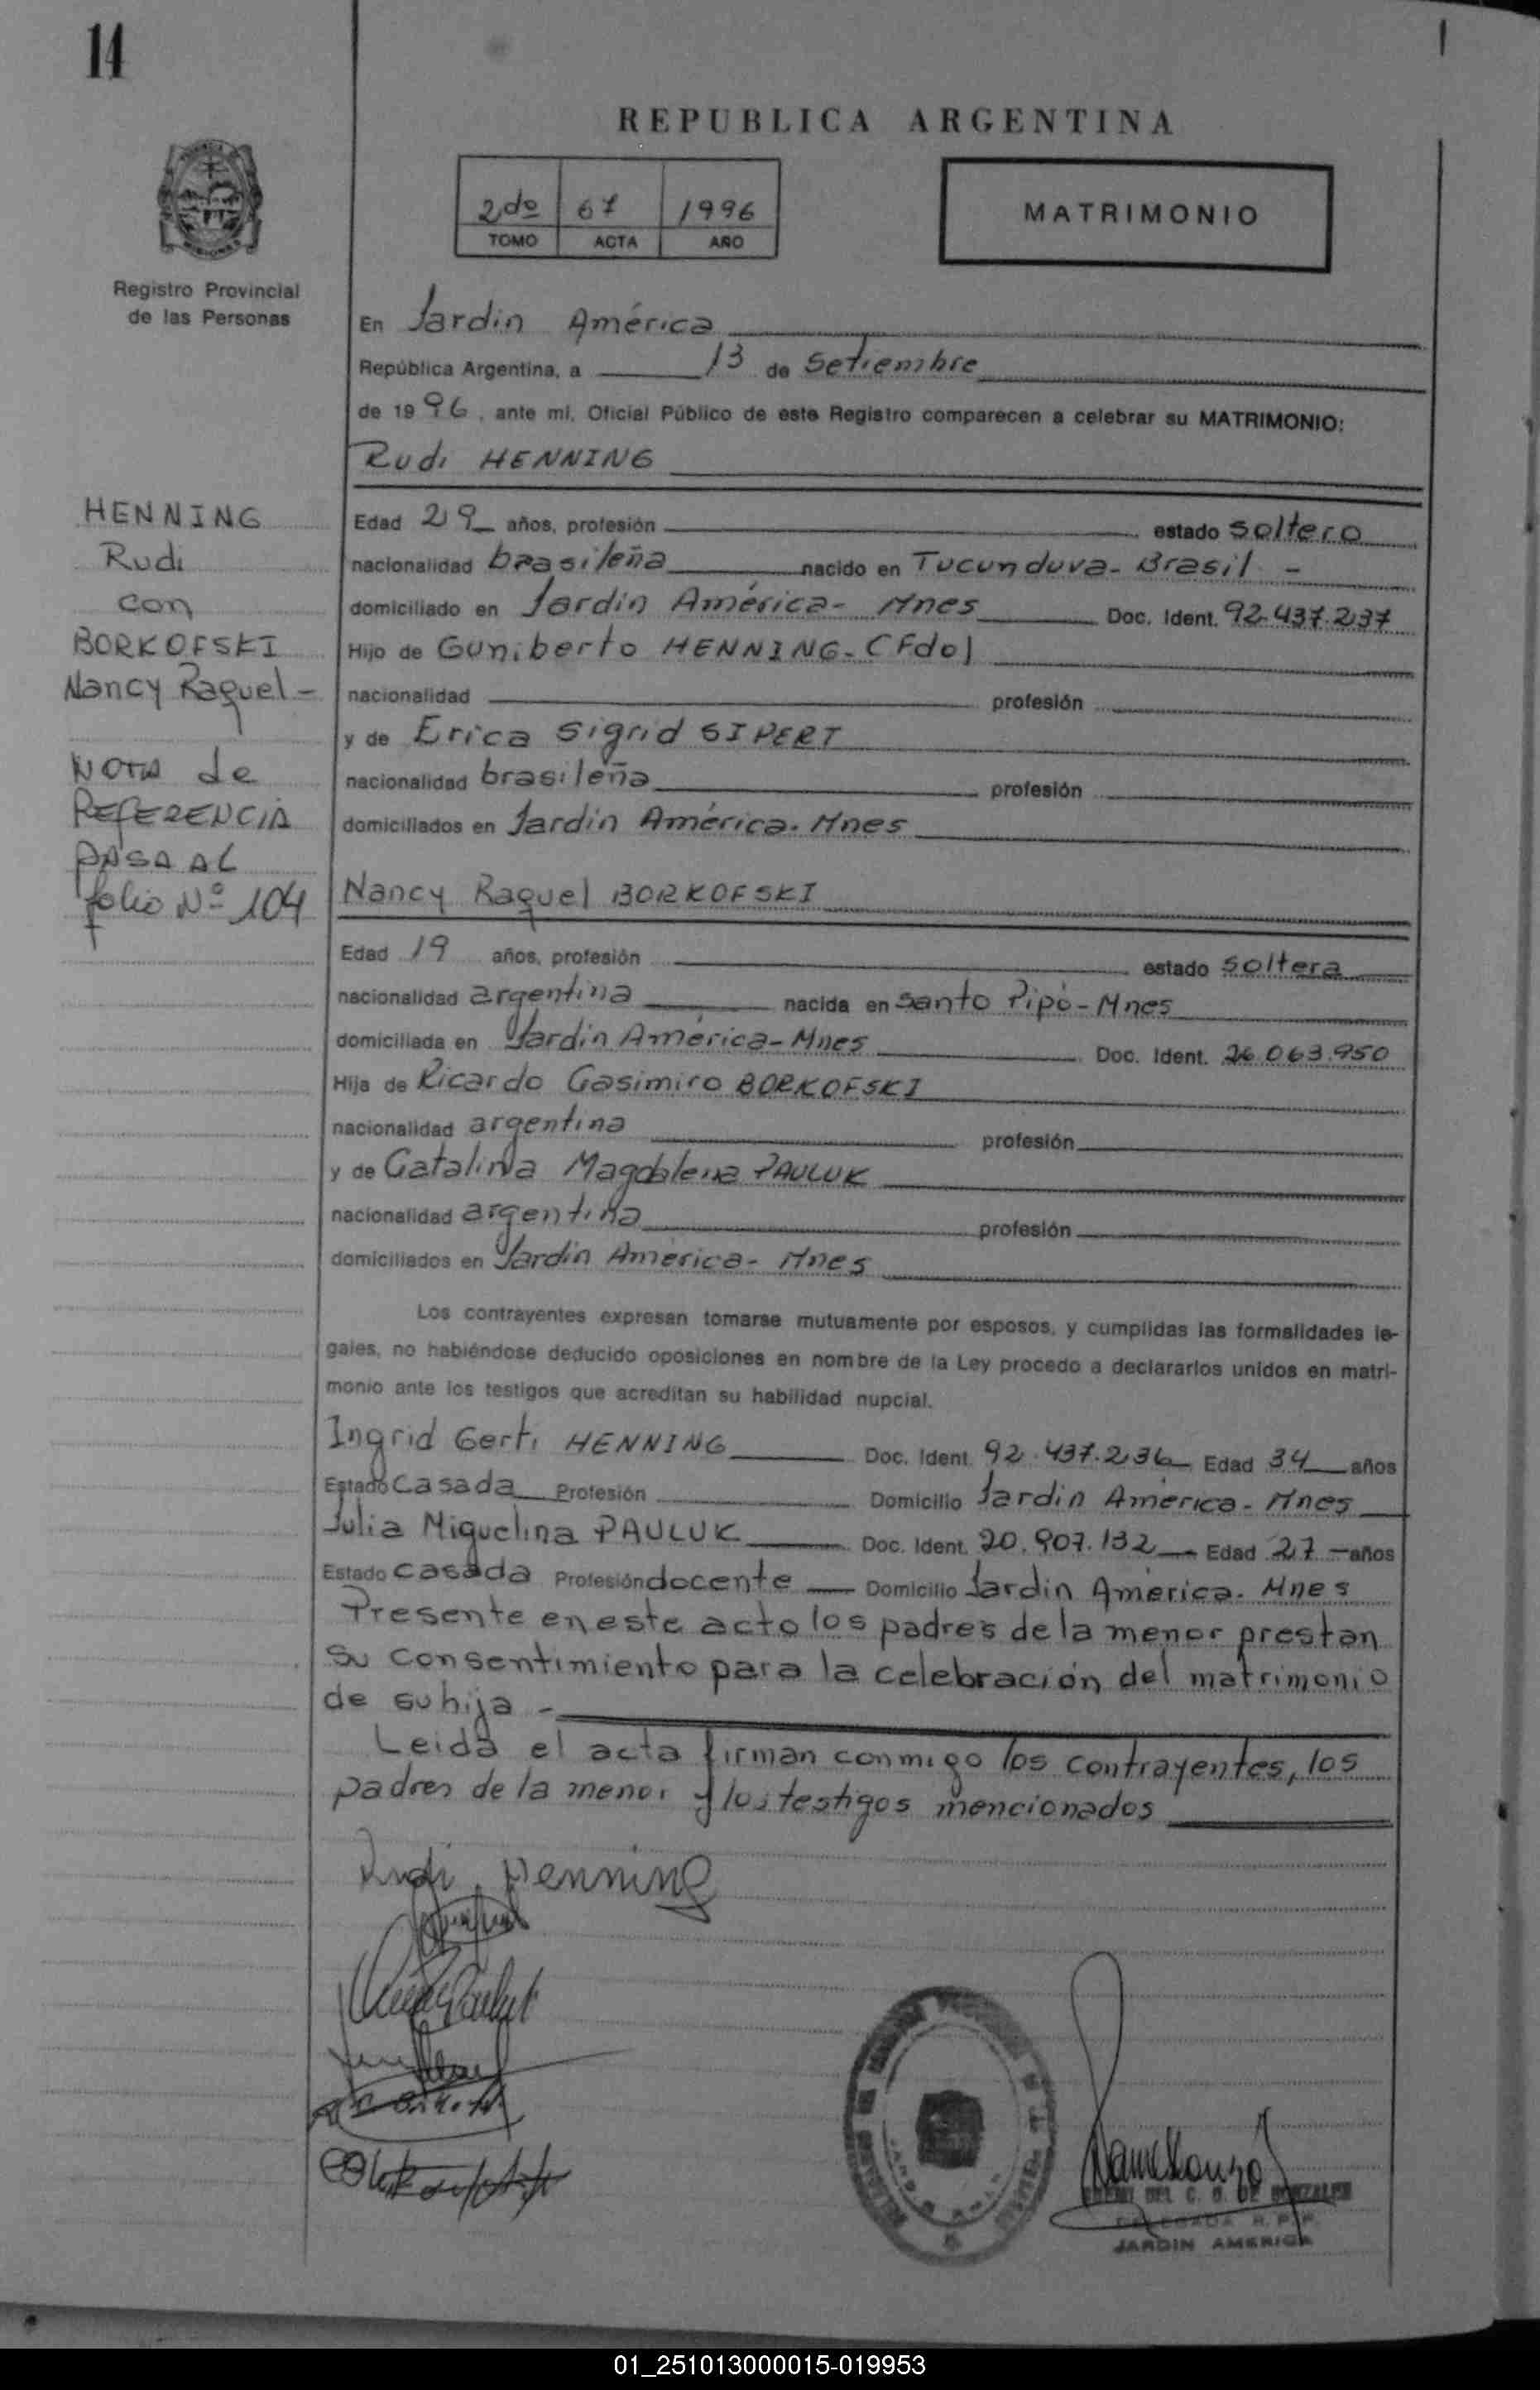 14
REPUBLICA ARGENTINA
2do 67 1996
TOMO ACTA AÑO
MATRIMONIO
Registro Provincial
de las Personas
En Jardin América
República Argentina, a 13 de Setiembre
de 1996, ante mí, Oficial Público de este Registro comparecen a celebrar su MATRIMONIO:
Rudi HENNING
HENNING
Rudi
con
BORKOFSKI
Nancy Raquel -
NOTA de
REFERENCIA
PASA AL
folio Nº 104
Edad 29 años, profesión estado soltero
nacionalidad brasileña nacido en Tucunduva- Brasil -
domiciliado en Jardin América- Mnes Doc. Ident. 92.437.237
Hijo de Guniberto HENNING-(Fdo)
nacionalidad profesión
y de Erica Sigrid SIPERT
nacionalidad brasileña profesión
domiciliados en Jardin América. Mnes
Nancy Raquel BORKOFSKI
Edad 19 años, profesión estado soltera
nacionalidad argentina nacida en Santo Pipó-Mnes
domiciliada en Jardin América-Mnes Doc. Ident. 26.063.950
Hija de Ricardo Casimiro BORKOFSKI
nacionalidad argentina profesión
y de Catalina Magdalena PAULUK
nacionalidad argentina profesión
domiciliados en Jardin América- Mnes
Los contrayentes expresan tomarse mutuamente por esposos, y cumplidas las formalidades le-
gales, no habiéndose deducido oposiciones en nombre de la Ley procedo a declararlos unidos en matri-
monio ante los testigos que acreditan su habilidad nupcial.
Ingrid Gerti HENNING Doc. Ident. 92.437.236 Edad 34 años
Estado Casada Profesión Domicilio Jardin América- Mnes
Julia Miguelina PAULUK Doc. Ident. 20.907.132 Edad 27 - años
Estado Casada Profesión docente Domicilio Jardin América. Mnes
Presente en este acto los padres de la menor prestan
su consentimiento para la celebración del matrimonio
de su hija -
Leida el acta firman conmigo los contrayentes, los
padres de la menor y los testigos mencionados
Rudi Henning
DEL C. D. DE GONZALEZ
DELEGADA R. P. P.
JARDIN AMERICA
01_251013000015-019953